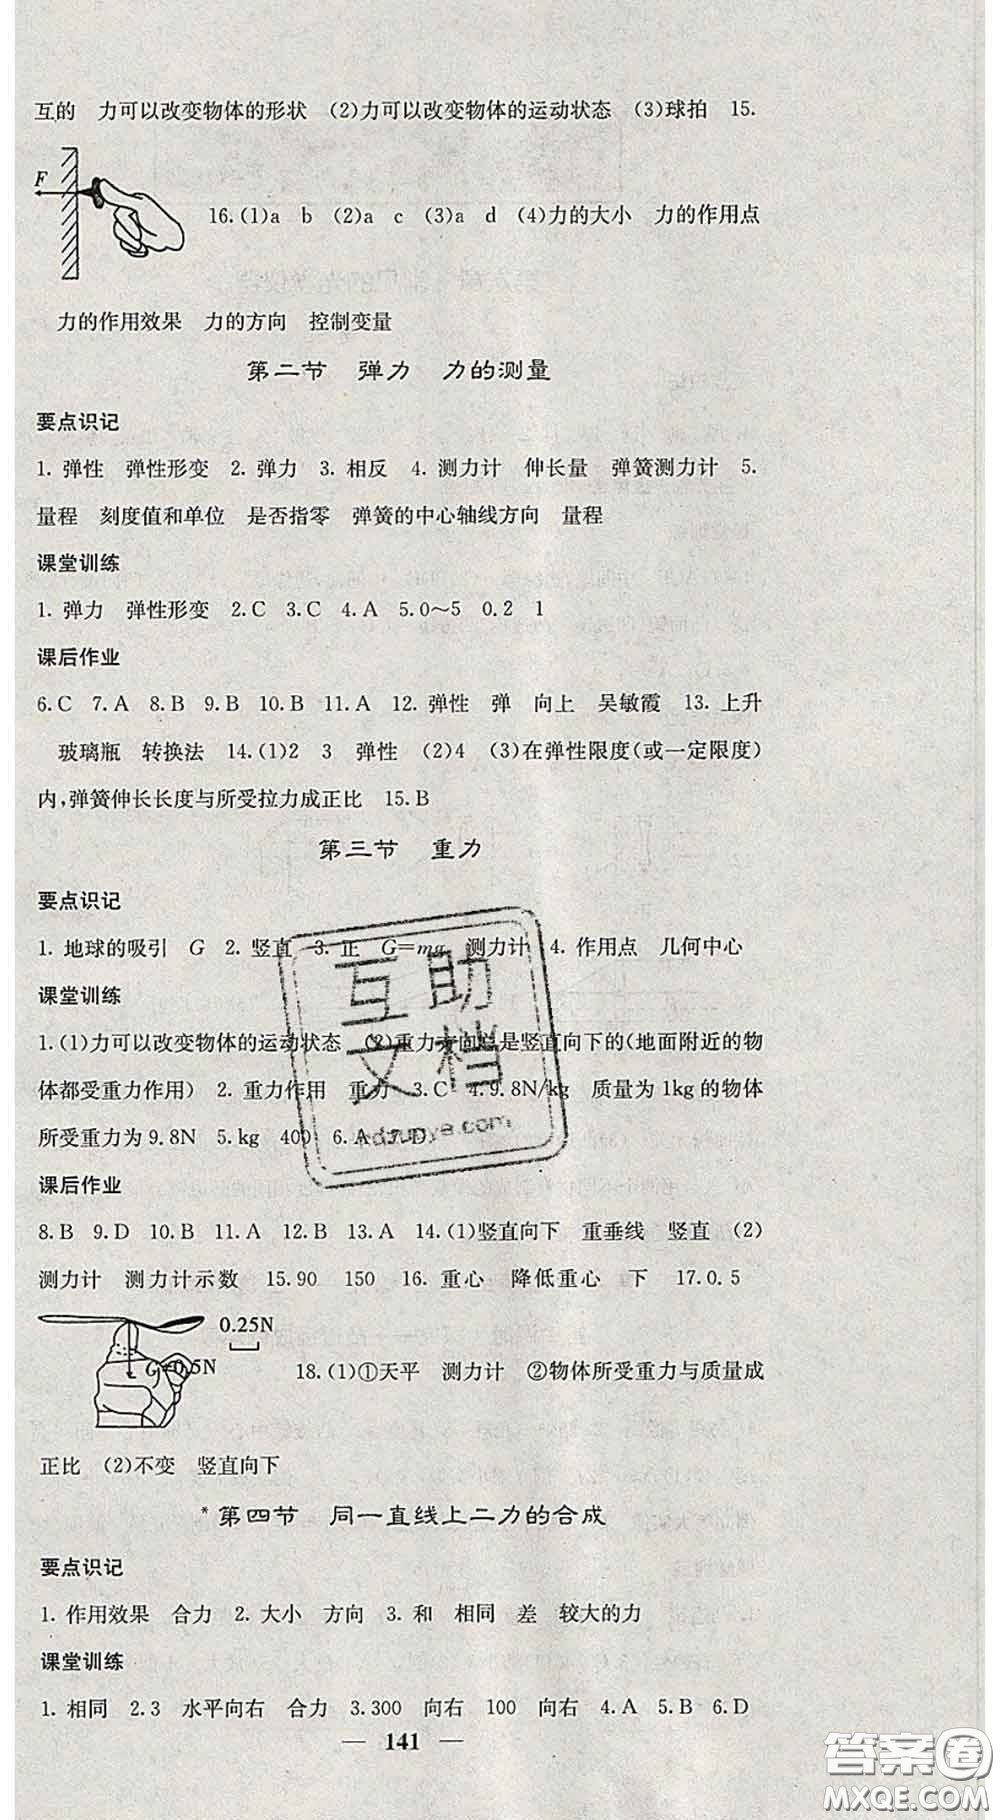 互的　力可以改变物体的形状　(2)力可以改变物体的运动状态　(3)球拍　15.
F
16.(1)a　b　(2)a　c　(3)a　d　(4)力的大小　力的作用点
力的作用效果　力的方向　控制变量
第二节　弹力　力的测量
要点识记
1. 弹性　弹性形变　2. 弹力　3. 相反　4. 测力计　伸长量　弹簧测力计　5.
量程　刻度值和单位　是否指零　弹簧的中心轴线方向　量程
课堂训练
1. 弹力　弹性形变　2.C　3.C　4.A　5.0～5　0.2　1
课后作业
6.C　7.A　8.B　9.B　10.B　11.A　12. 弹性　弹　向上　吴敏霞　13. 上升
玻璃瓶　转换法　14.(1)2　3　弹性　(2)4　(3)在弹性限度(或一定限度)
内,弹簧伸长长度与所受拉力成正比　15.B
第三节　重力
要点识记
1. 地球的吸引　G　2. 竖直　3. 正　G=mg　测力计　4. 作用点　几何中心
课堂训练
1.(1)力可以改变物体的运动状态　(2)重力方向总是竖直向下的(地面附近的物
体都受重力作用)　2. 重力作用　重力　3.C　4.9.8N/kg　质量为1kg的物体
所受重力为9.8N　5.kg　400　6.A　7.D
互助
文档
课后作业
8.B　9.D　10.B　11.A　12.B　13.A　14.(1)竖直向下　重垂线　竖直　(2)
测力计　测力计示数　15.90　150　16. 重心　降低重心　下　17.0.5
0.25N
G=0.5N
18.(1)①天平　测力计　②物体所受重力与质量成
正比　(2)不变　竖直向下
*第四节　同一直线上二力的合成
要点识记
1. 作用效果　合力　2. 大小　方向　3. 和　相同　差　较大的力
课堂训练
1. 相同　2.3　水平向右　合力　3.300　向右　100　向右　4.A　5.B　6.D
— 141 —
答案圈
MXQE.COM